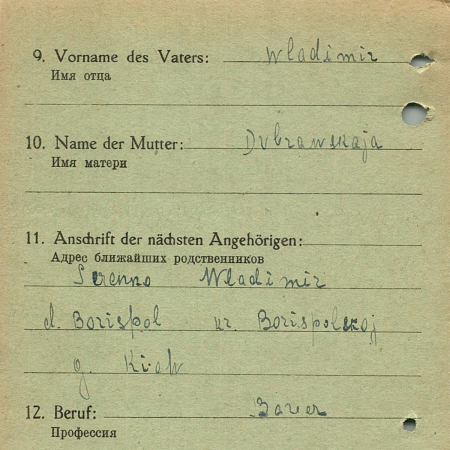 9. Vorname des Vaters: Wladimir
Имя отца
10. Name der Mutter: Dubrawskaja
Имя матери
11. Anschrift der nächsten Angehörigen:
Адрес ближайших родственников
Wladimir
d. Borispol ur. Borispolskoj
g. Kiew
12. Beruf: Bauer
Профессия